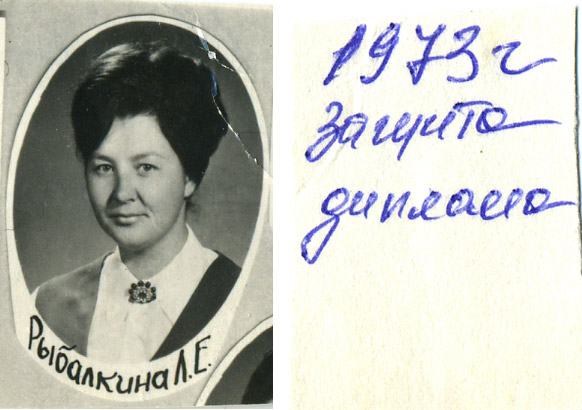 Рыбалкина Л.Е.
1973 г
Защита
диплома